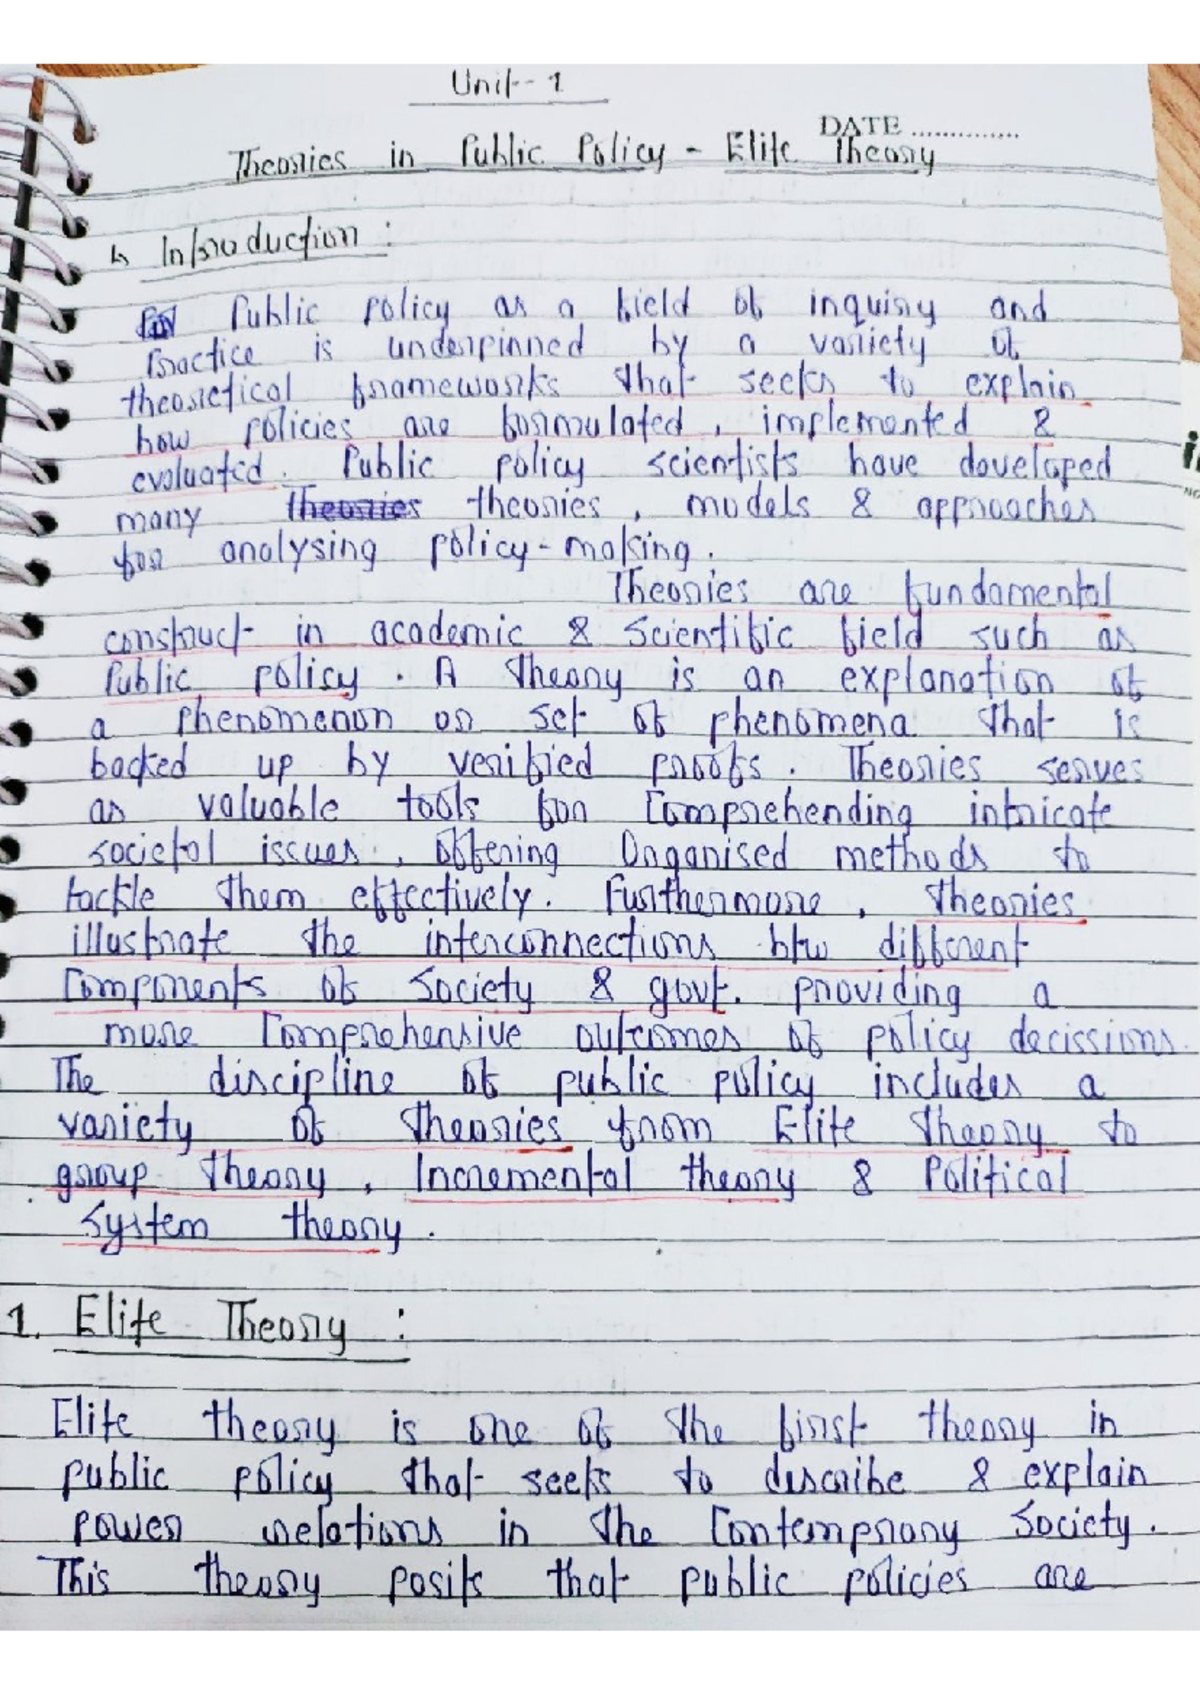 Unit-1
DATE ..............
Theories in Public Policy - Elite Theory
↳ Introduction :
Public policy as a field of inquiry and
practice is underpinned by a variety of
theoretical frameworks that seeks to explain
how policies are formulated, implemented &
evaluated. Public policy scientists have doveloped
many theories theories, models & approaches
for analysing policy-making.
Theories are fundamental
construct in academic & scientific field such as
Public policy. A theory is an explanation of
a phenomenon or set of phenomena that is
backed up by verified proofs. Theories serves
as valuable tools for Comprehending intricate
societal issues, offering Organised methods to
tackle them effectively. Furthermore, theories
illustrate the interconnections btw different
Components of Society & govt. providing a
more Comprehensive outcomes of policy decissions.
The discipline of public policy includes a
variety of theories from Elite theory to
group theory, Incremental theory & Political
System theory.
1. Elite Theory :
Elite theory is one of the first theory in
public policy that seeks to describe & explain
power relations in the Contemprary Society.
This theory posits that public policies are